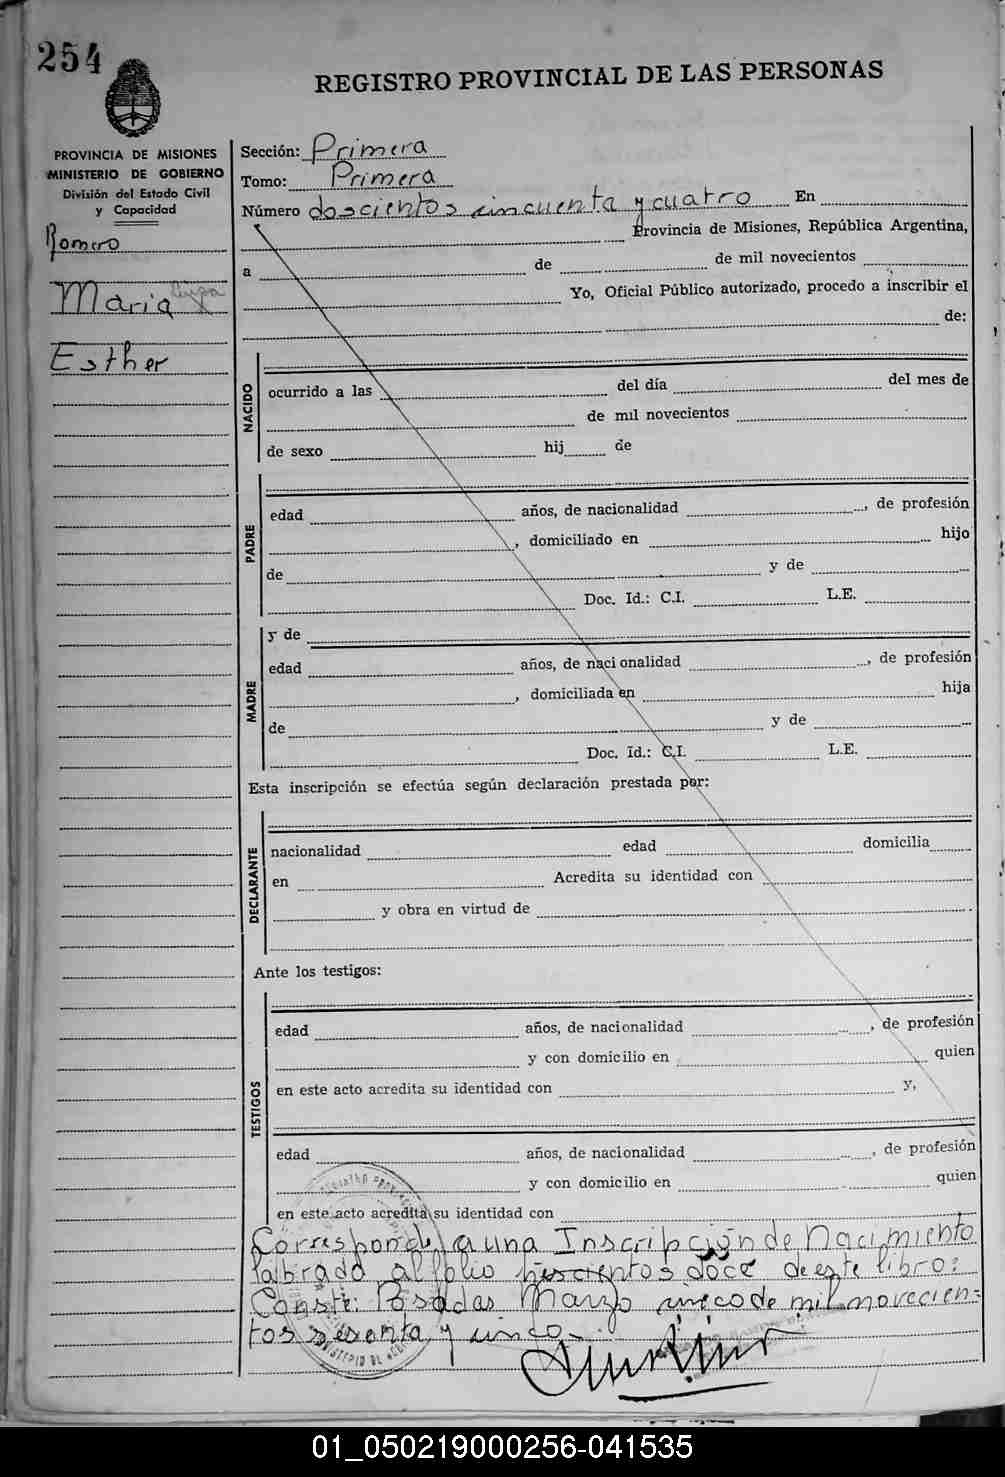 254
REGISTRO PROVINCIAL DE LAS PERSONAS
PROVINCIA DE MISIONES
MINISTERIO DE GOBIERNO
División del Estado Civil
y Capacidad
Romero
Maria
Esther
Sección: Primera
Tomo: Primera
Número doscientos cincuenta y cuatro En
Provincia de Misiones, República Argentina,
a de de mil novecientos
Yo, Oficial Público autorizado, procedo a inscribir el
de:
NACIDO
ocurrido a las del día del mes de
de mil novecientos
de sexo hij de
PADRE
edad años, de nacionalidad , de profesión
, domiciliado en hijo
de y de
Doc. Id.: C.I. L.E.
MADRE
y de
edad años, de nacionalidad , de profesión
, domiciliada en hija
de y de
Doc. Id.: C.I. L.E.
Esta inscripción se efectúa según declaración prestada por:
DECLARANTE
nacionalidad edad domicilia
en Acredita su identidad con
y obra en virtud de
Ante los testigos:
TESTIGOS
edad años, de nacionalidad , de profesión
y con domicilio en quien
en este acto acredita su identidad con y,
edad años, de nacionalidad , de profesión
y con domicilio en quien
en este acto acredita su identidad con
Corresponde a una Inscripción de Nacimiento
labrada al folio trescientos doce de este libro:
Conste: Posadas Marzo cinco de mil novecien-
tos sesenta y cinco.-
01_050219000256-041535